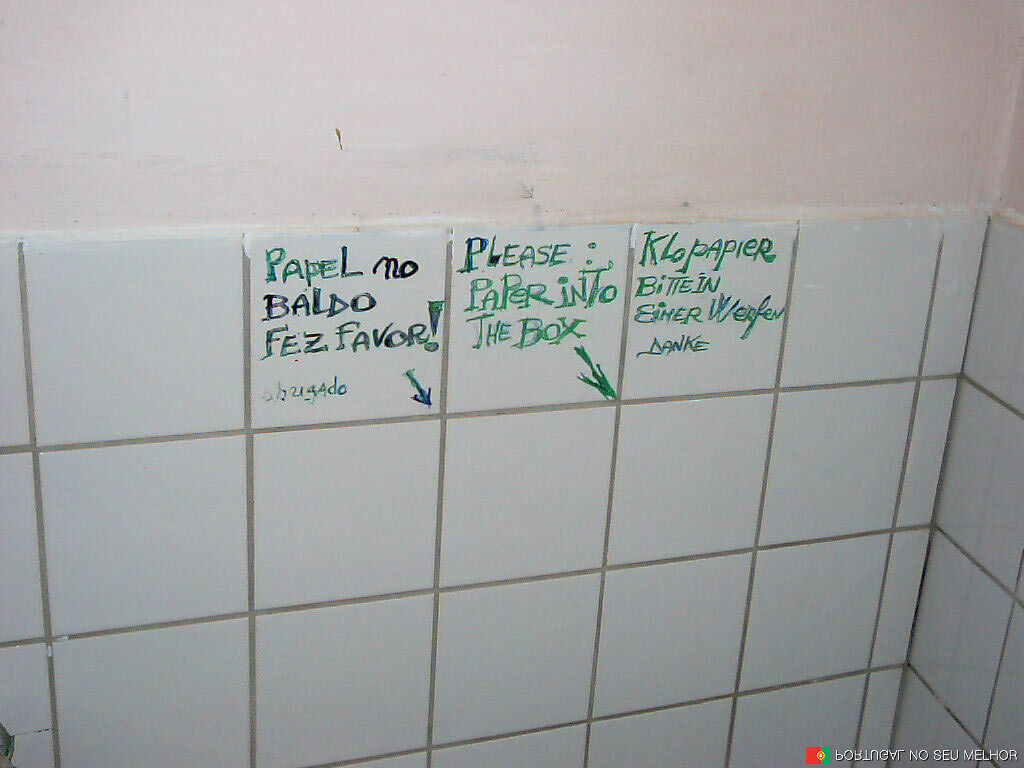 PAPEL no
BALDO
FEZ FAVOR!
obrigado
PLEASE :
PAPER INTO
THE BOX
KLOPAPIER
BITTE IN
EIMER Werfen
DANKE
PORTUGAL NO SEU MELHOR